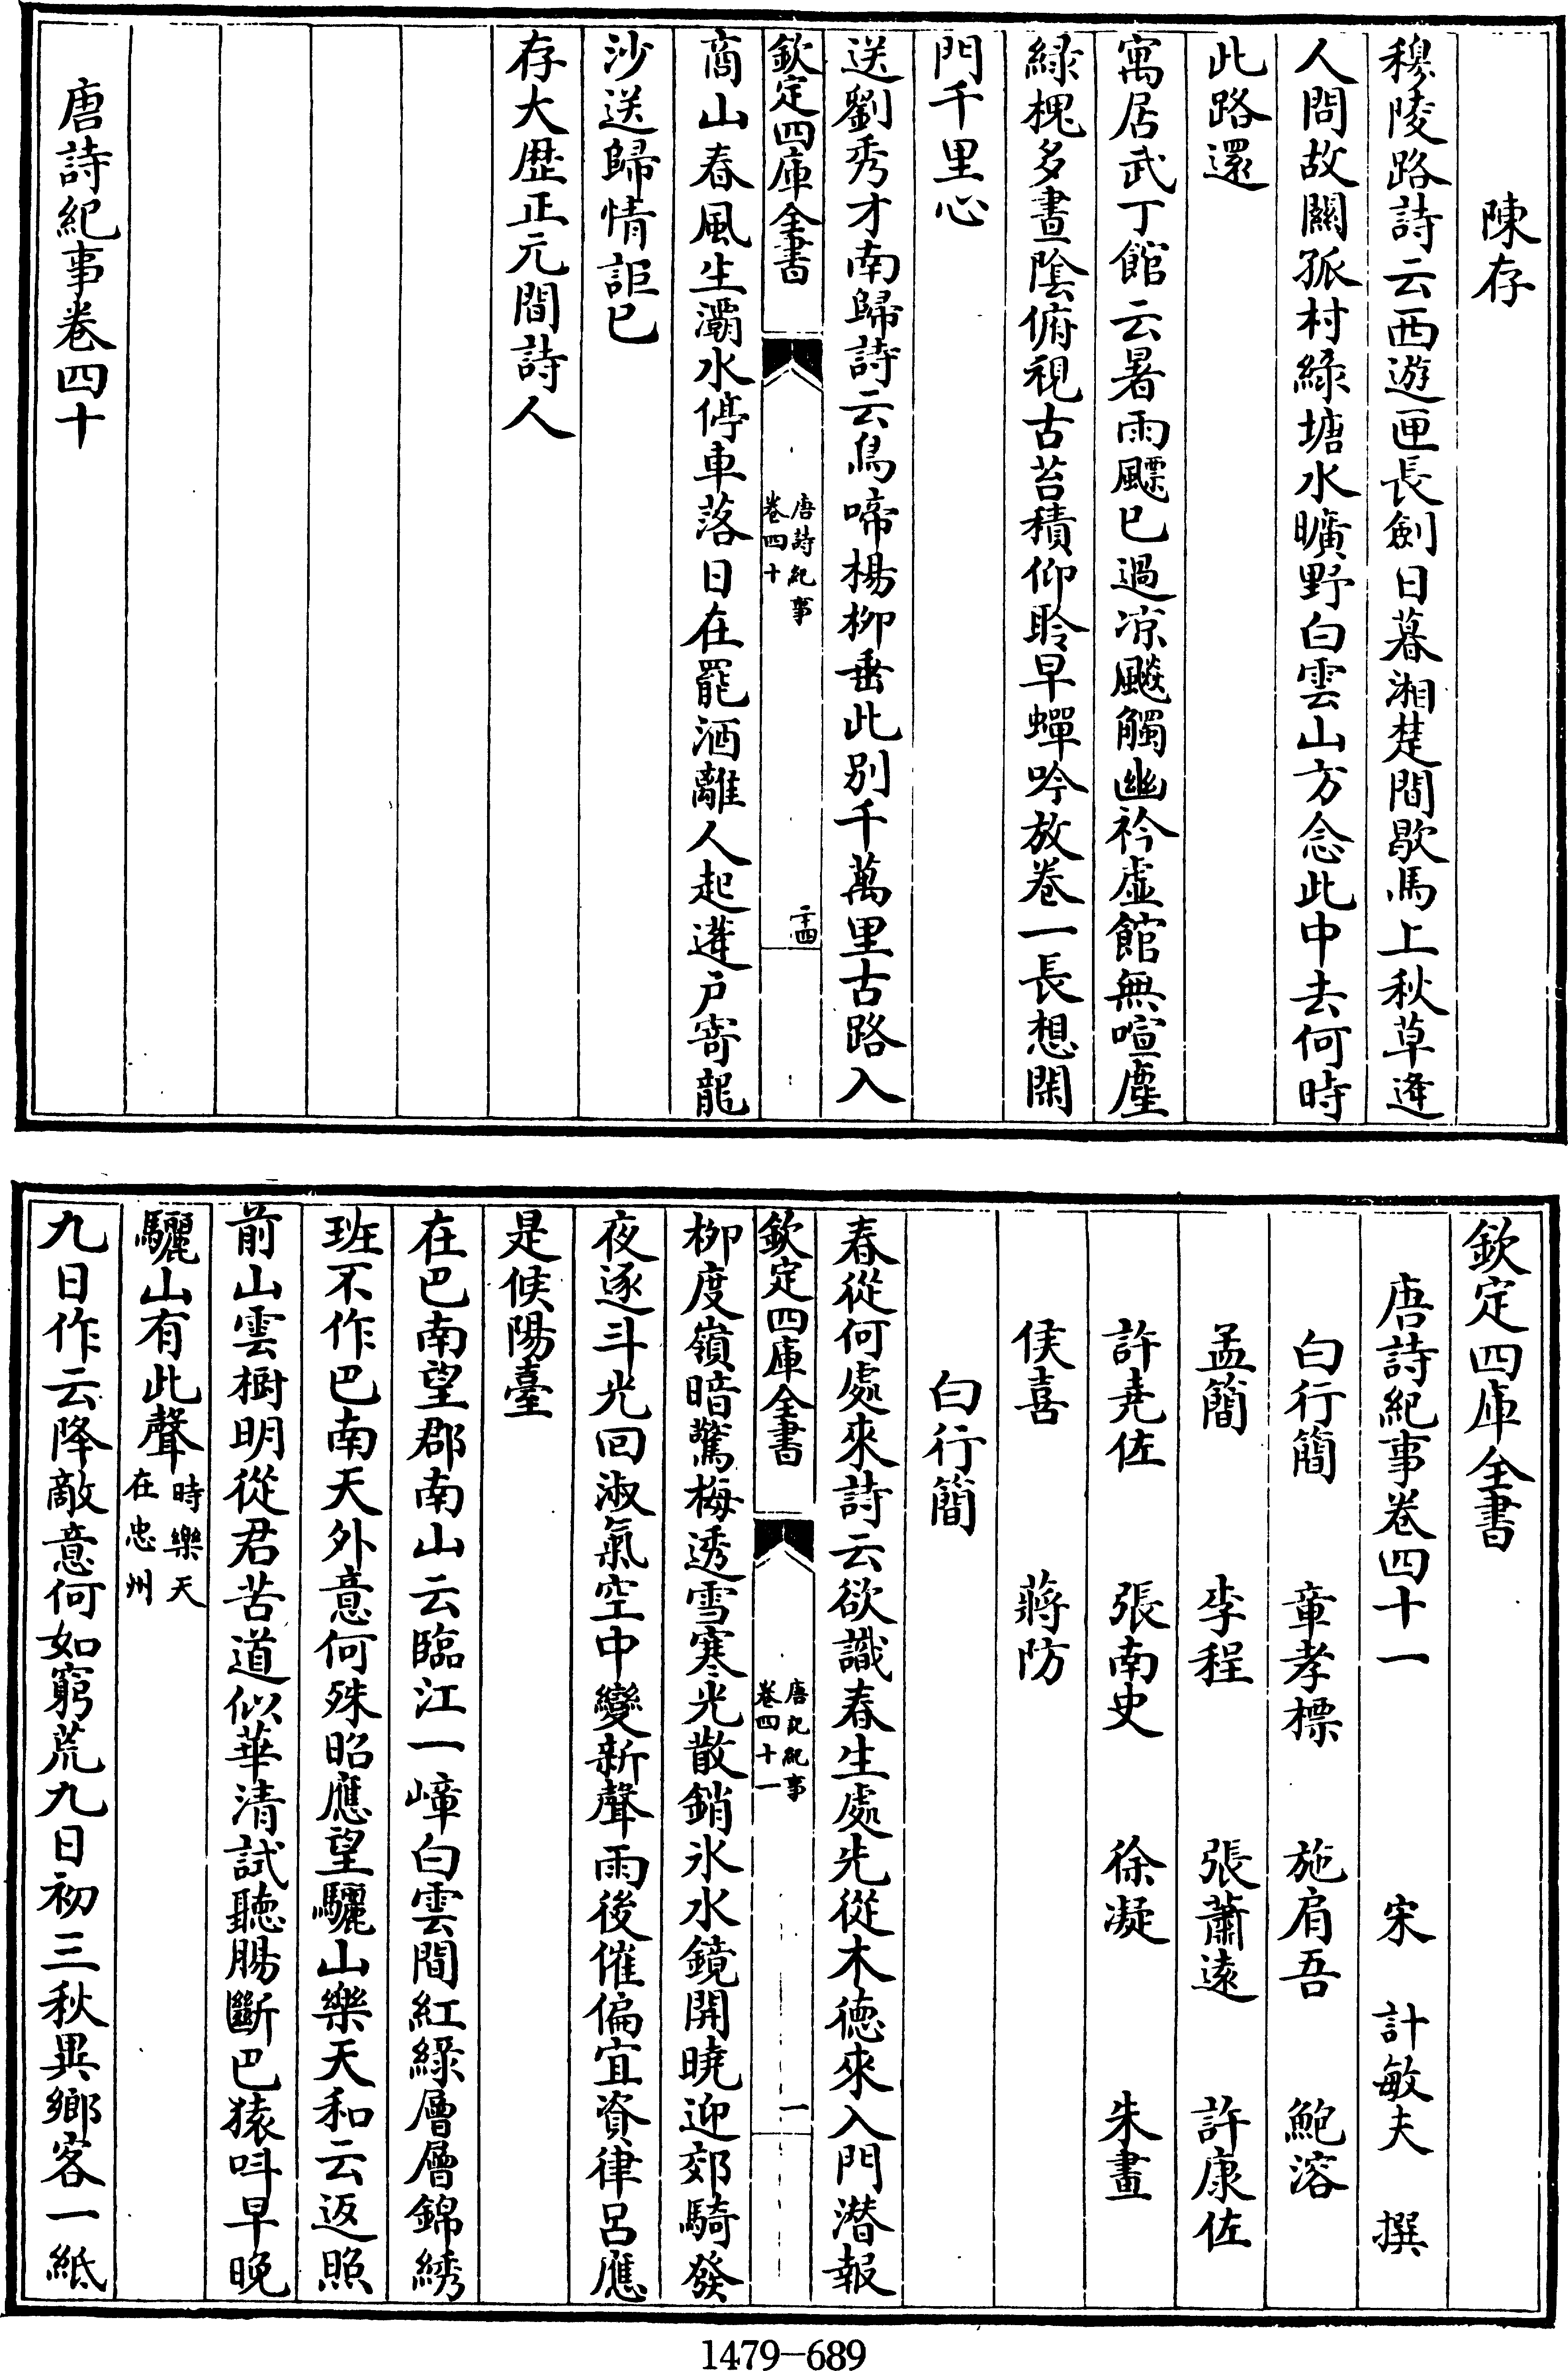 陳存
穆陵路詩云西遊匣長劍日暮湘楚間歇馬上秋草逢
人問故關孤村綠塘水曠野白雲山方念此中去何時
此路還
寓居武丁館云暑雨飄已過凉飇觸幽衿虛館無喧塵
綠槐多晝陰俯視古苔積仰聆早蟬吟放卷一長想閑
門千里心
送劉秀才南歸詩云鳥啼楊柳垂此别千萬里古路入
欽定四庫全書
唐詩紀事
卷四十
二十四
商山春風生灞水停車落日在罷酒離人起蓬户寄龍
沙送歸情詎已
存大歴正元間詩人
唐詩紀事卷四十
欽定四庫全書
唐詩紀事卷四十一 宋 計敏夫 撰
白行簡 章孝標 施肩吾 鮑溶
孟簡 李程 張蕭遠 許康佐
許堯佐 張南史 徐凝 朱晝
侯喜 蔣防
白行簡
春從何處來詩云欲識春生處先從木德來入門潜報
欽定四庫全書
唐詩紀事
卷四十一
一
柳度嶺暗驚梅透雪寒光散銷氷水鏡開曉迎郊騎發
夜逐斗光回淑氣空中變新聲雨後催偏宜資律吕應
是候陽臺
在巴南望郡南山云臨江一嶂白雲間紅綠層層錦綉
班不作巴南天外意何殊昭應望驪山樂天和云返照
前山雲樹明從君苦道似華清試聽腸斷巴猿呌早晚
驪山有此聲時樂天在忠州
九日作云降敵意何如窮荒九日初三秋異鄉客一紙
1479-689